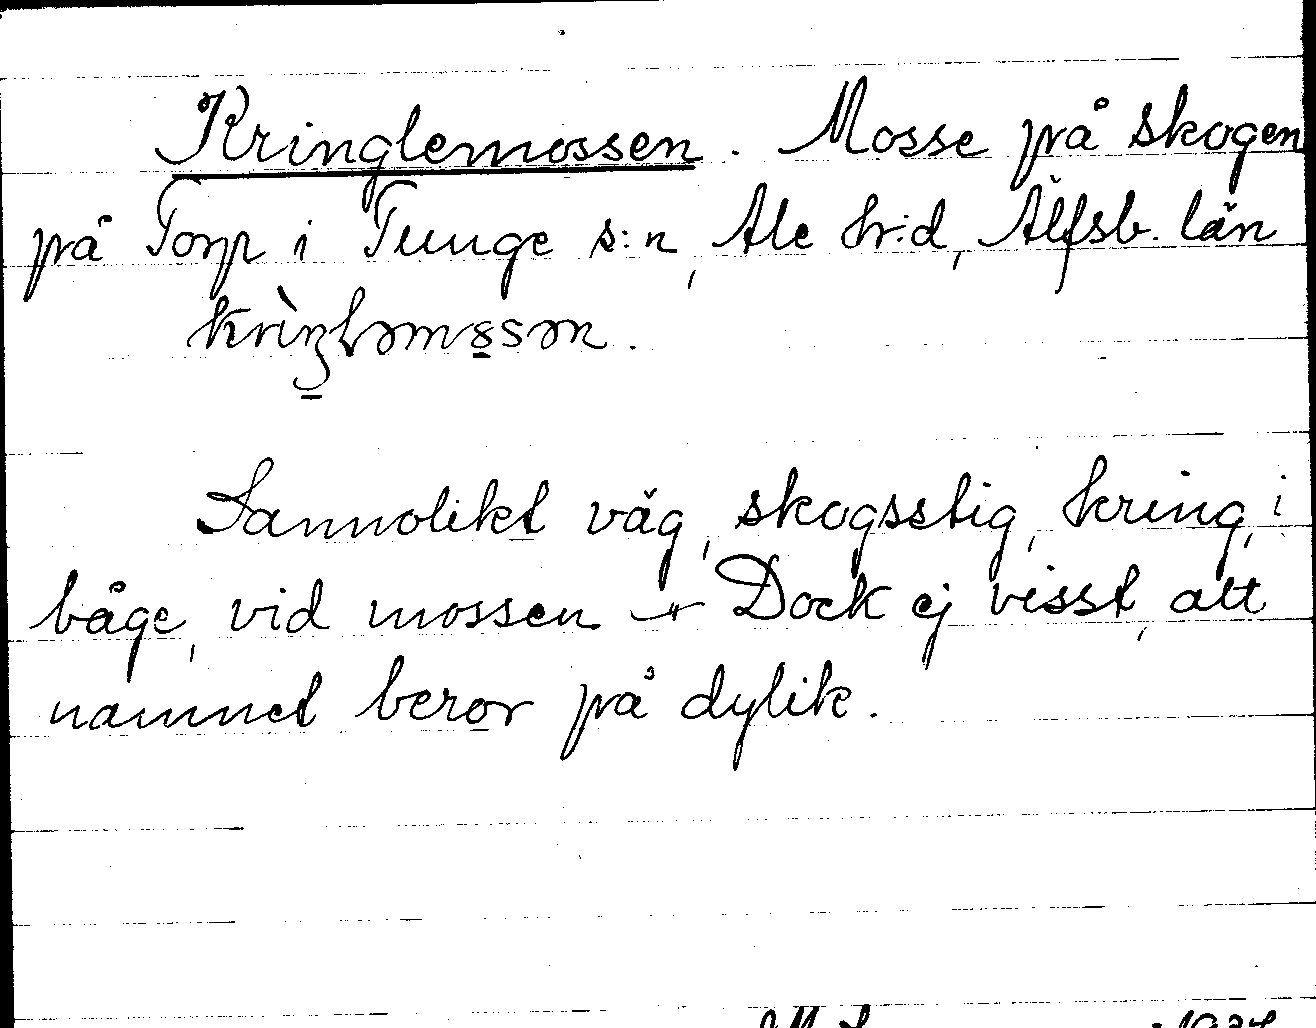 Kringlemossen. Mosse på skogen
på Torp i Tunge s:n, Ale hr:d, Älfsb. län
Sannolikt väg, skogsstig, kring, i
båge, vid mossen — Dock ej visst, att
namnet beror på dylik.